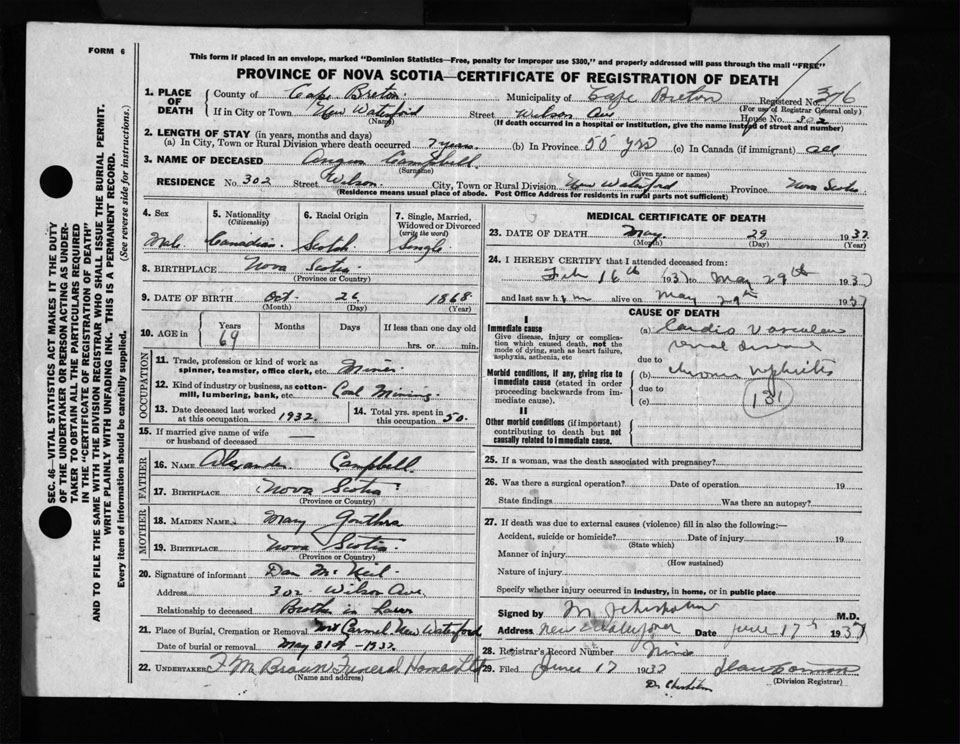 FORM 6
This form if placed in an envelope, marked "Dominion Statistics—Free, penalty for improper use $300," and properly addressed will pass through the mail "FREE"
PROVINCE OF NOVA SCOTIA—CERTIFICATE OF REGISTRATION OF DEATH
1. PLACE OF DEATH
County of Cape Breton Municipality of Cape Breton Registered No. 376
(For use of Registrar General only)
If in City or Town New Waterford Street Wilson Ave House No. 302
(Name) (If death occurred in a hospital or institution, give the name instead of street and number)
2. LENGTH OF STAY (in years, months and days)
(a) In City, Town or Rural Division where death occurred 7 years. (b) In Province 55 yrs (c) In Canada (if immigrant) all
3. NAME OF DECEASED Angus Campbell
(Surname) (Given name or names)
RESIDENCE No. 302 Street Wilson City, Town or Rural Division New Waterford Province Nova Scotia
(Residence means usual place of abode. Post Office Address for residents in rural parts not sufficient)
4. Sex
Male
5. Nationality (Citizenship)
Canadian
6. Racial Origin
Scotch
7. Single, Married, Widowed or Divorced (write the word)
Single
8. BIRTHPLACE Nova Scotia
(Province or Country)
9. DATE OF BIRTH Oct. 26 1868
(Month) (Day) (Year)
10. AGE in Years Months Days If less than one day old
69 hrs. or min.
OCCUPATION
11. Trade, profession or kind of work as spinner, teamster, office clerk, etc. Miner
12. Kind of industry or business, as cotton-mill, lumbering, bank, etc. Coal Mining.
13. Date deceased last worked at this occupation 1932.
14. Total yrs. spent in this occupation 50.
15. If married give name of wife or husband of deceased —
FATHER
16. NAME Alexander Campbell
17. BIRTHPLACE Nova Scotia
(Province or Country)
MOTHER
18. MAIDEN NAME Mary
19. BIRTHPLACE Nova Scotia
(Province or Country)
20. Signature of informant Dan McNeil
Address 302 Wilson Ave
Relationship to deceased Brother in Law
21. Place of Burial, Cremation or Removal Mt Carmel New Waterford
Date of burial or removal May 31st - 1937.
22. UNDERTAKER F. M. Brown Funeral Home Ltd
(Name and address)
MEDICAL CERTIFICATE OF DEATH
23. DATE OF DEATH May 29 1937
(Month) (Day) (Year)
24. I HEREBY CERTIFY that I attended deceased from:
Feb 16th 1937 to May 29th 1937
and last saw him alive on May 29th 1937
CAUSE OF DEATH
I
Immediate cause
Give disease, injury or complication which caused death, not the mode of dying, such as heart failure, asphyxia, asthenia, etc
(a) Cardio Vascular
renal disease
due to
Morbid conditions, if any, giving rise to immediate cause (stated in order proceeding backwards from immediate cause).
(b) chronic nephritis
due to
(c)
131
II
Other morbid conditions (if important) contributing to death but not causally related to immediate cause.
25. If a woman, was the death associated with pregnancy?
26. Was there a surgical operation? Date of operation 19
State findings Was there an autopsy?
27. If death was due to external causes (violence) fill in also the following:—
Accident, suicide or homicide? Date of injury 19
(State which)
Manner of injury
(How sustained)
Nature of injury
Specify whether injury occurred in industry, in home, or in public place
Signed by M J Chisholm M.D.
Address New Waterford Date June 17th 1937
28. Registrar's Record Number Nine
29. Filed June 17 1937
(Division Registrar)
Dr Chisholm
SEC. 46—VITAL STATISTICS ACT MAKES IT THE DUTY
OF THE UNDERTAKER OR PERSON ACTING AS UNDER-
TAKER TO OBTAIN ALL THE PARTICULARS REQUIRED
IN THE "CERTIFICATE OF REGISTRATION OF DEATH"
AND TO FILE THE SAME WITH THE DIVISION REGISTRAR WHO SHALL ISSUE THE BURIAL PERMIT.
WRITE PLAINLY WITH UNFADING INK. THIS IS A PERMANENT RECORD.
Every item of information should be carefully supplied. (See reverse side for instructions.)